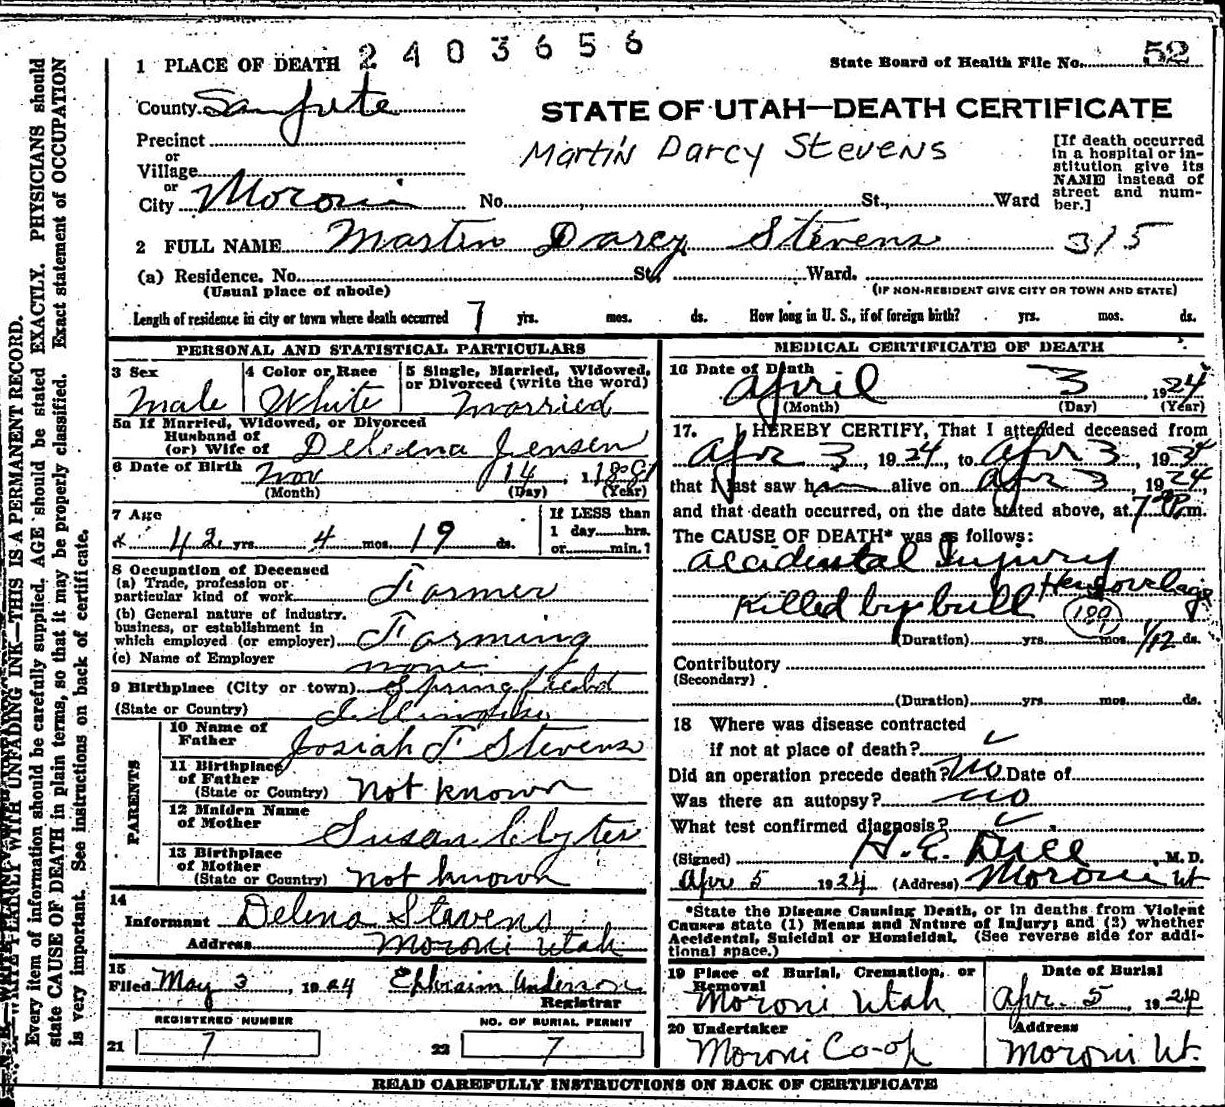 2403656
1 PLACE OF DEATH
State Board of Health File No. 52
County Sanpete
STATE OF UTAH—DEATH CERTIFICATE
Precinct
or
Village
or
City Moroni
Martin Darcy Stevens
[If death occurred in a hospital or in-
stitution give its
NAME instead of
street and num-
ber.]
No. St., Ward
2 FULL NAME Martin Darcy Stevens 315
(a) Residence. No. St, Ward.
(Usual place of abode) (IF NON-RESIDENT GIVE CITY OR TOWN AND STATE)
Length of residence in city or town where death occurred 7 yrs. mos. ds. How long in U. S., if of foreign birth? yrs. mos. ds.
PERSONAL AND STATISTICAL PARTICULARS
3 Sex Male
4 Color or Race White
5 Single, Married, Widowed,
or Divorced (write the word)
Married
5a If Married, Widowed, or Divorced
Husband of
(or) Wife of Deleena Jensen
6 Date of Birth Nov 14, 1881
(Month) (Day) (Year)
7 Age
42 yrs. 4 mos. 19 ds.
If LESS than
1 day......hrs.
or......min.?
8 Occupation of Deceased
(a) Trade, profession or
particular kind of work Farmer
(b) General nature of industry.
business, or establishment in
which employed (or employer) Farming
(c) Name of Employer none
9 Birthplace (City or town) Springfield
(State or Country)
PARENTS
10 Name of
Father Josiah F Stevens
11 Birthplace
of Father
(State or Country) Not known
12 Maiden Name
of Mother Susan Clyter
13 Birthplace
of Mother
(State or Country) not known
14
Informant Delena Stevens
Address Moroni Utah
15
Filed May 3, 1924 Ephraim Anderson
Registrar
REGISTERED NUMBER
21 7
NO. OF BURIAL PERMIT
22 7
MEDICAL CERTIFICATE OF DEATH
16 Date of Death
April 3, 1924
(Month) (Day) (Year)
17. I HEREBY CERTIFY, That I attended deceased from
Apr 3, 1924, to Apr 3, 19
that I last saw h alive on Apr 3, 1924,
and that death occurred, on the date stated above, at 7 P.m.
The CAUSE OF DEATH* was as follows:
accidental Injury
Killed by bull
189
(Duration) yrs. mos. 1/12 ds.
Contributory
(Secondary)
(Duration) yrs. mos. ds.
18 Where was disease contracted
if not at place of death?
Did an operation precede death? No Date of
Was there an autopsy? no
What test confirmed diagnosis?
(Signed) H. E. Dice, M. D.
Apr 5 1924 (Address) Moroni Ut
*State the Disease Causing Death, or in deaths from Violent
Causes state (1) Means and Nature of Injury; and (2) whether
Accidental, Suicidal or Homicidal. (See reverse side for addi-
tional space.)
19 Place of Burial, Cremation, or
Removal
Moroni Utah
Date of Burial
Apr. 5, 1924
20 Undertaker
Moroni Co-op
Address
Moroni Ut.
READ CAREFULLY INSTRUCTIONS ON BACK OF CERTIFICATE
N. B.—WRITE PLAINLY WITH UNFADING INK—THIS IS A PERMANENT RECORD.
Every item of information should be carefully supplied. AGE should be stated EXACTLY. PHYSICIANS should
state CAUSE OF DEATH in plain terms, so that it may be properly classified. Exact statement of OCCUPATION
is very important. See instructions on back of certificate.